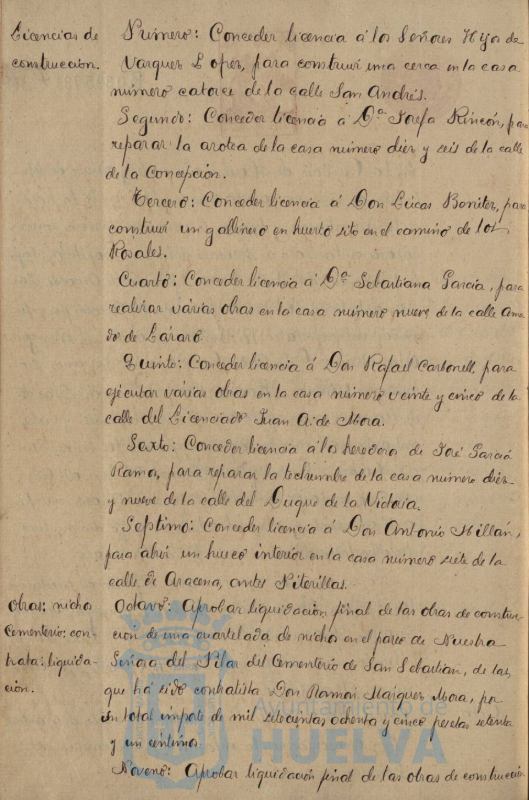 Licencias de
construcción.
Primero: Conceder licencia á los Señores Hijos de
Vazquez Lopez, para construir una cerca en la casa
número catorce de la calle San Andrés.
Segundo: Conceder licencia á Dª Josefa Rincón, para
reparar la azotea de la casa número diez y seis de la calle
de la Concepción.
Tercero: Conceder licencia á Don Lucas Benitez, para
construir un gallinero en huerto sito en el camino de los
Rosales.
Cuarto: Conceder licencia á Dª Sebastiana Garcia, para
realizar várias obras en la casa número nueve de la calle Ama
do de Lázaro.
Quinto: Conceder licencia á Don Rafael Carbonell, para
ejecutar várias obras en la casa número veinte y cinco de la
calle del Licenciado Juan A. de Mora.
Sexto: Conceder licencia á la heredera de José Garcia
Ramos, para reparar la techumbre de la casa número diez
y nueve de la calle del Duque de la Victoria.
Septimo: Conceder licencia á Don Antonio Millán,
para abrir un hueco interior en la casa número siete de la
calle de Aracena, antes Piterillas.
Obras: nichos
Cementerio: con-
trata: liquida-
ción.
Octavo: Aprobar liquidacion final de las obras de construc-
cion de una cuartelada de nichos en el paseo de Nuestra
Señora del Pilar del Cementerio de San Sebastian, de las
que há sido contratista Don Ramón Maiquez Mora, por
un total importe de mil setecientas ochenta y cinco pesetas setenta
y un centimos.
Noveno: Aprobar liquidación final de las obras de construcción
Ayuntamiento de
HUELVA